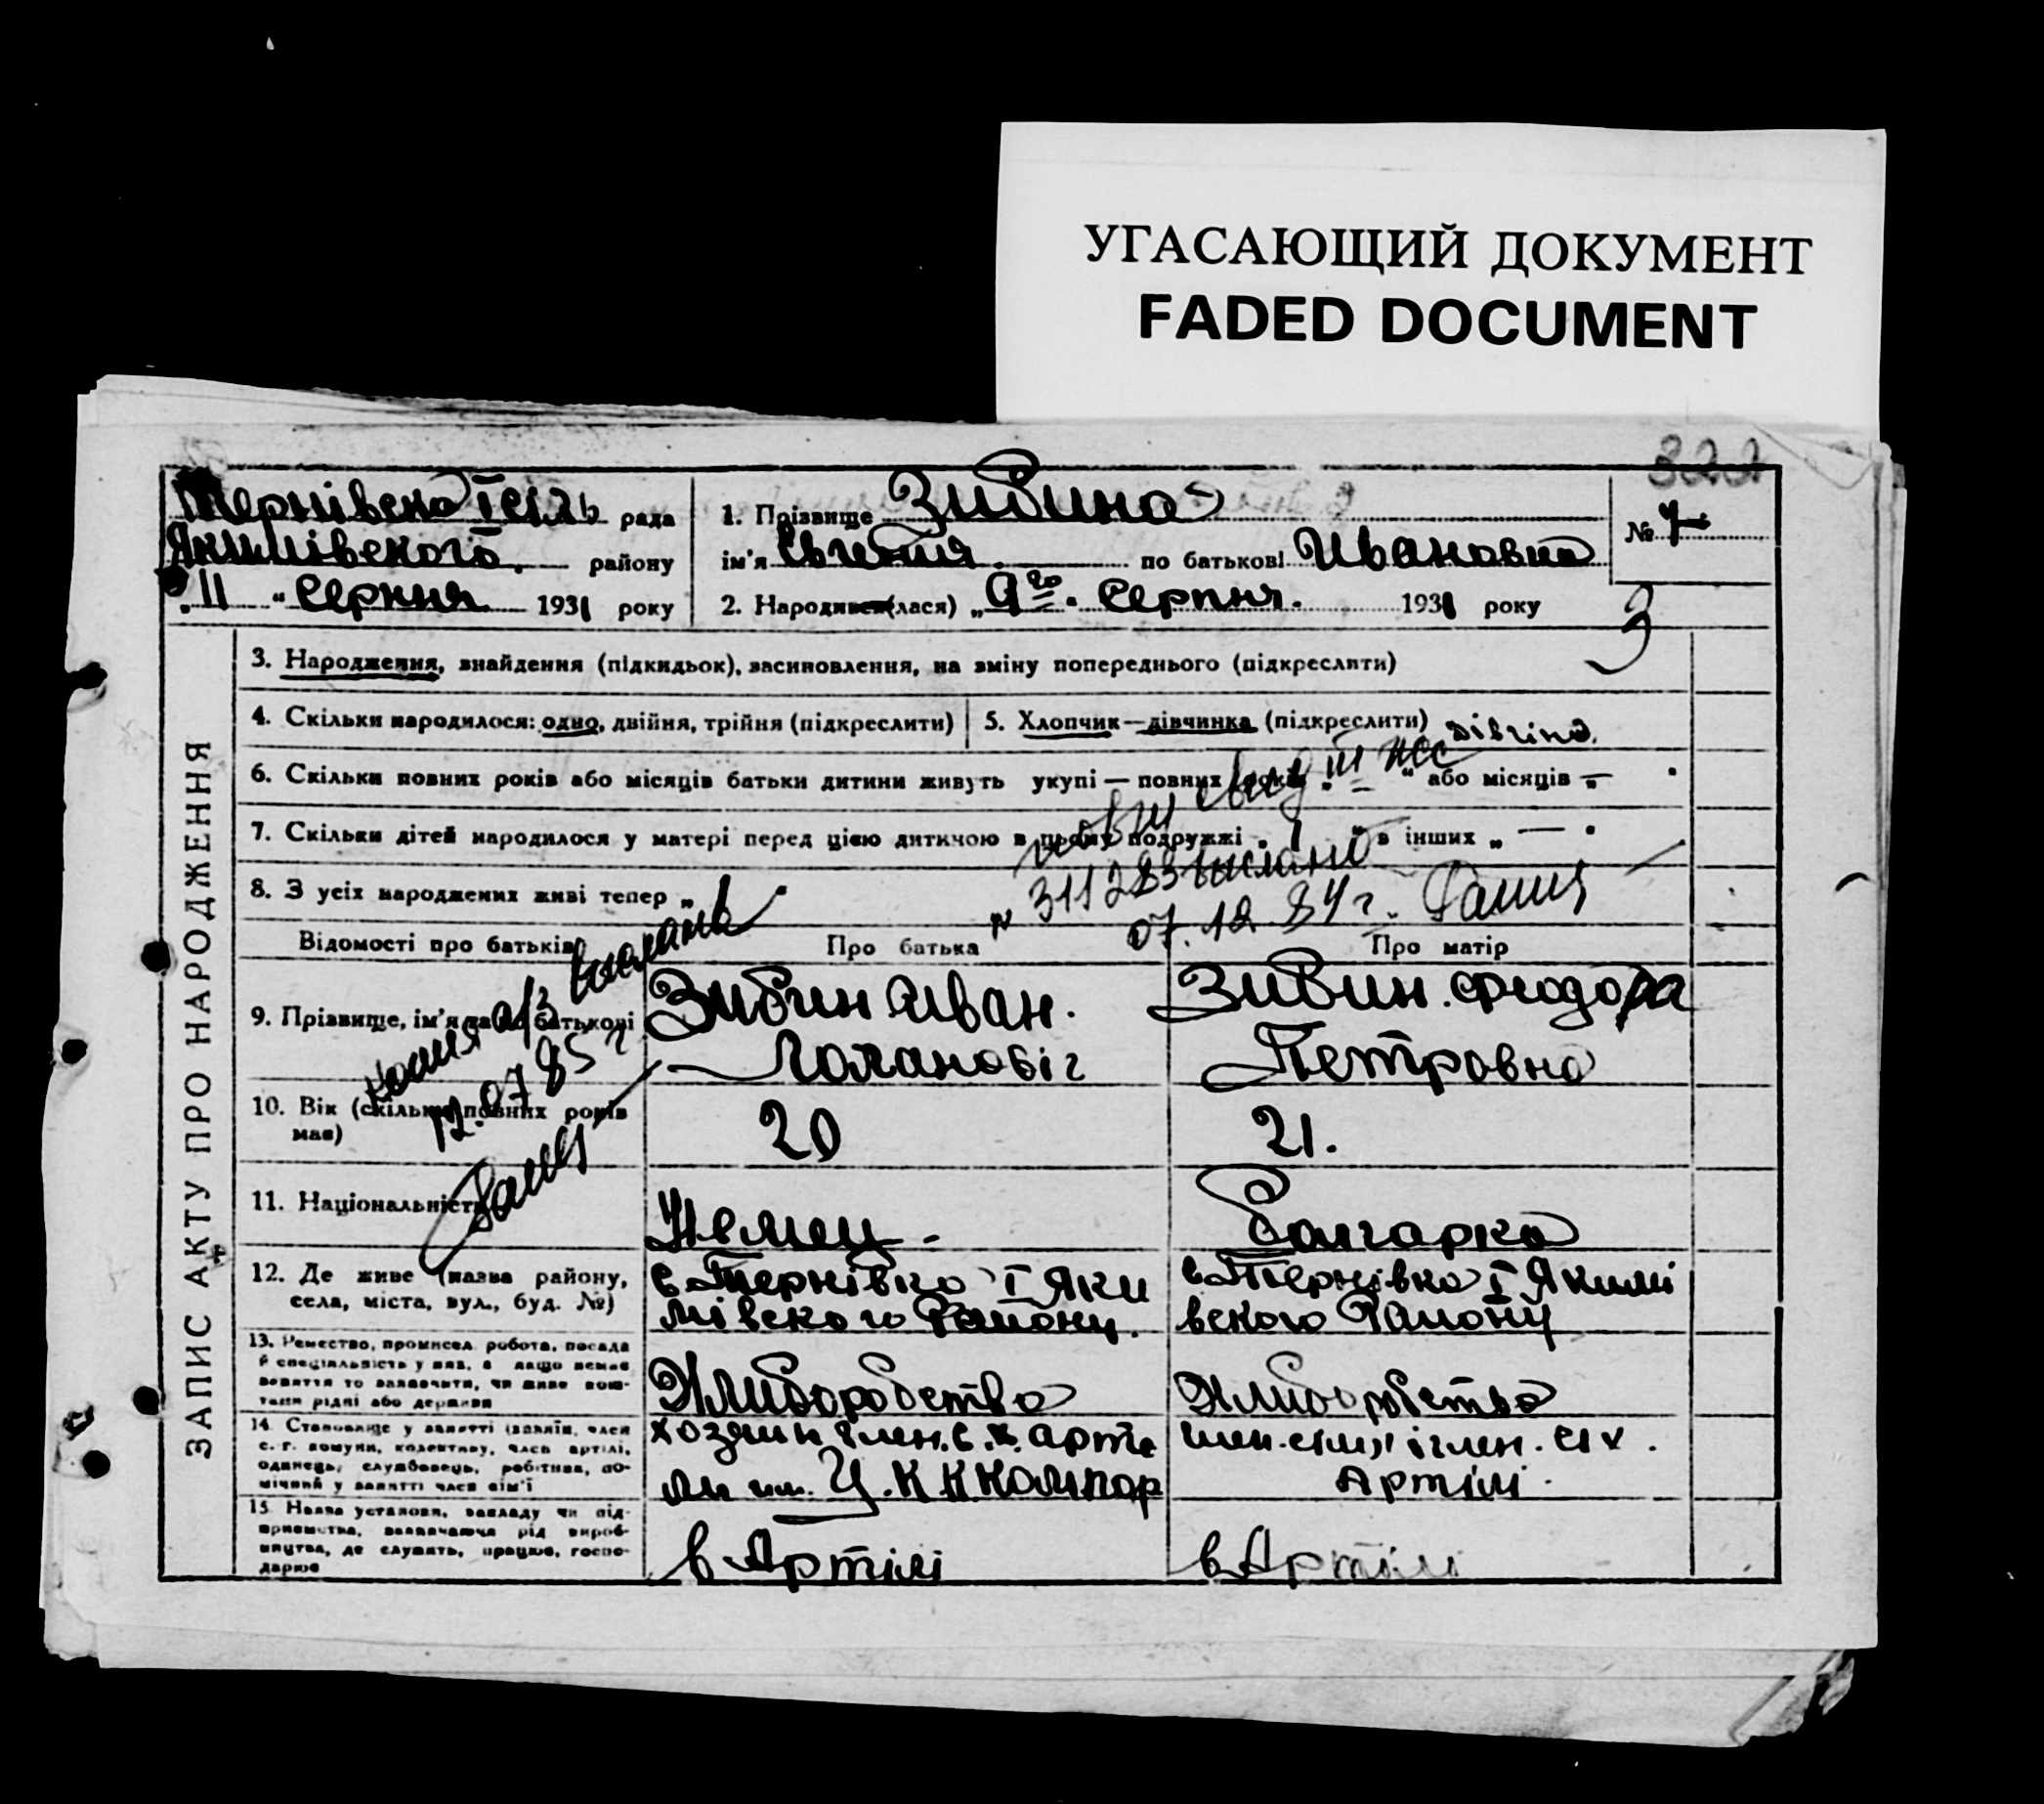 УГАСАЮЩИЙ ДОКУМЕНТ
FADED DOCUMENT
322
Тернівска І сіль рада
Якимівского району
"11" Серпня 1931 року
1. Прізвище Зибина
ім'я Евгения по батькові Ивановна
№ 7
2. Народився(лася) „9го" Серпня. 1931 року
3
ЗАПИС АКТУ ПРО НАРОДЖЕННЯ
3. Народження, знайдення (підкидьок), засиновлення, на зміну попереднього (підкреслити)
4. Скільки народилося: одно, двійня, трійня (підкреслити)
5. Хлопчик—дівчинка (підкреслити) дівчіна.
6. Скільки повних років або місяців батьки дитини живуть укупі — повних років „ " або місяців „—"
7. Скільки дітей народилося у матері перед цією дитиною в цьому подружжі „1" в інших „—"
8. З усіх народжених живі тепер „1"
повт свид III ЖС
№ 311283 выслано
07.12.84г.
Відомості про батьків
Про батька
Про матір
копия а/з выслана
12.07.85 г
9. Прізвище, ім'я та по батькові
Зибин Иван.
Зибин. Феодора
Петровна
10. Вік (скільки повних років має)
20
21.
11. Національність
Немец.
Болгарка
12. Де живе (назва району, села, міста, вул., буд. №)
с Тернівка І Яки
мівского Району.
с Тернівка І Якимі
вского Району
13. Ремество, промисел, робота, посада
й спеціальність у них, а якщо немає
заняття то зазначити, чи живе кош-
тами рідні або держави
Хлиборобство
Хлиборобство
14. Становище у занятті (хазяїн, член
с.-г. комуни, колективу, член артілі,
одинець, службовець, робітник, по-
мічний у занятті член сім'ї
хозяин член. с. х. арте
ли им. Ц. К К Компар
член. сімі і член. с х.
Артілі.
15. Назва установи, закладу чи під-
приємства, зазначаючи рід вироб-
ництва, де служить, працює, госпо-
дарює
в Артілі
в Артілі